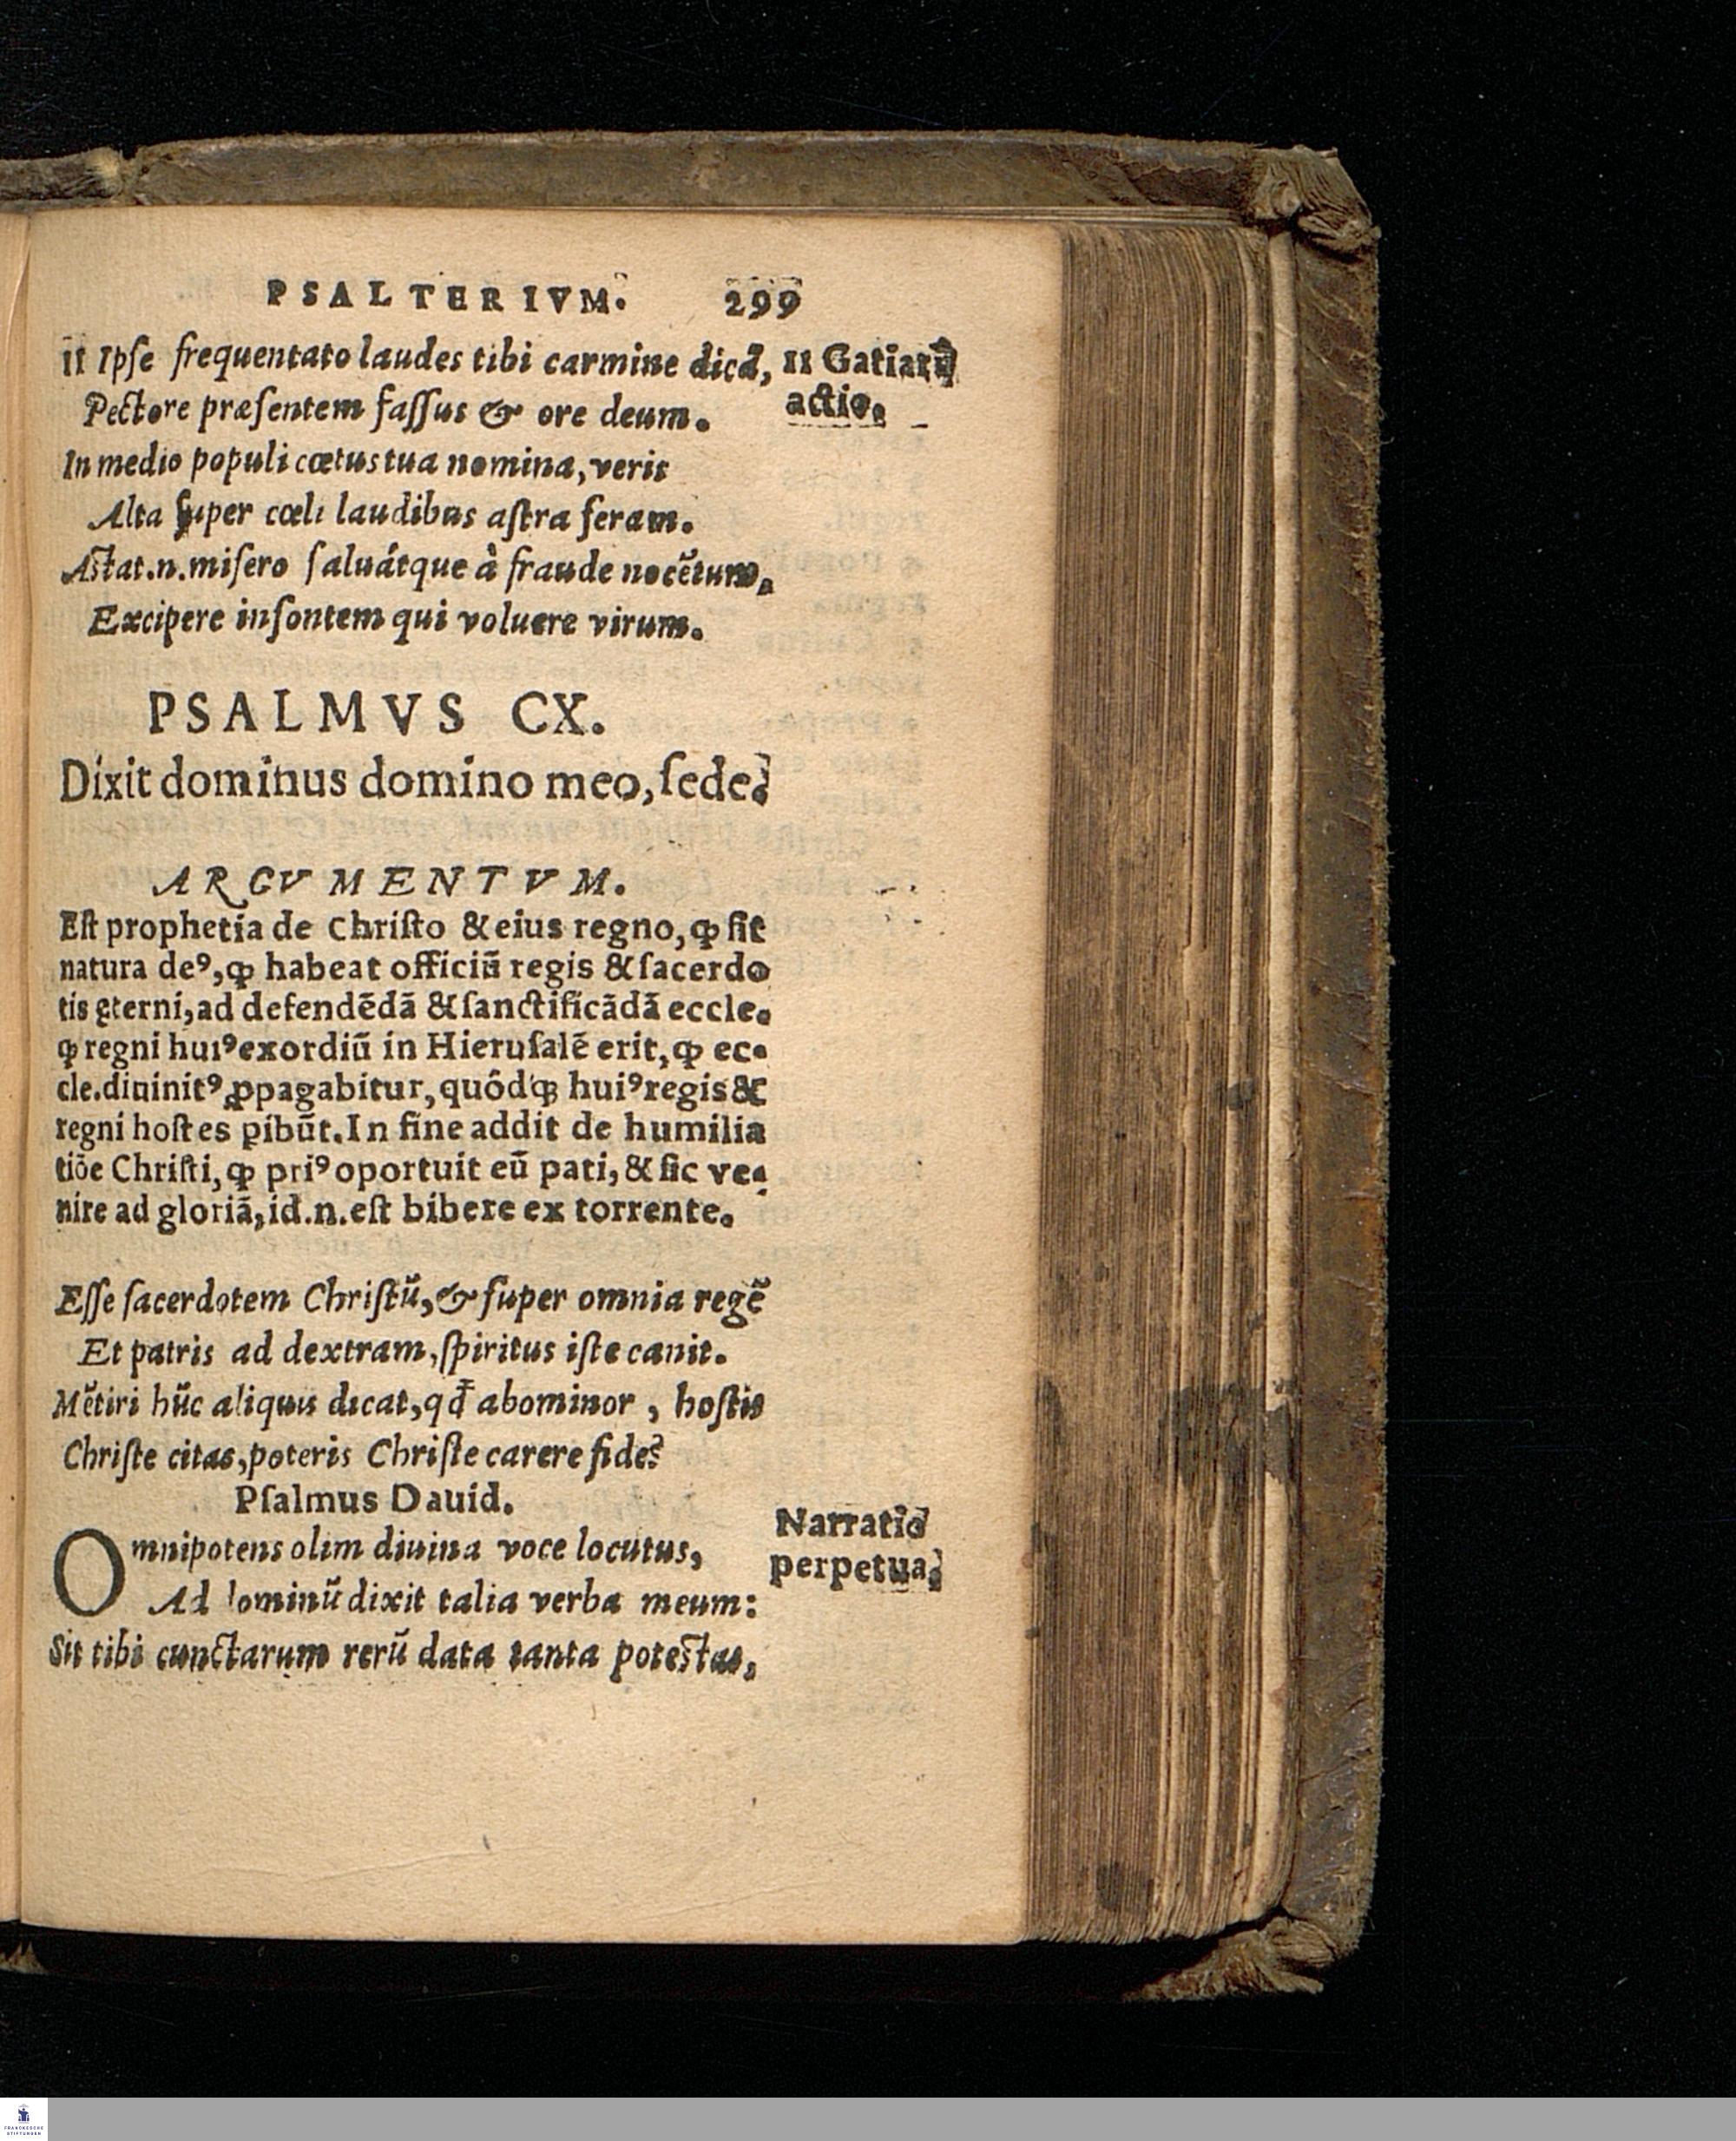 PSALTERIVM. 299
II Ipſe frequentato laudes tibi carmine dicā, II Gatiarū
Pectore præſentem faſſus & ore deum. actio.
In medio populi cœtus tua nomina, veris
Alta ſuper cœli laudibus aſtra feram.
Aſtat.n.miſero ſaluátque à fraude nocētum,
Excipere inſontem qui voluere virum.
PSALMVS CX.
Dixit dominus domino meo, ſede.
ARGVMENTVM.
Eſt prophetia de Chriſto & eius regno, ꝙ ſit
natura deꝰ, ꝙ habeat officiū regis & ſacerdo
tis ęterni, ad defendēdā & ſanctificādā eccle.
ꝙ regni huiꝰ exordiū in Hieruſalē erit, ꝙ ec-
cle.diuinitꝰ ꝓpagabitur, quódꝗ; huiꝰ regis &
regni hoſtes ꝑibūt. In fine addit de humilia
tiōe Chriſti, ꝙ priꝰ oportuit eū pati, & ſic ve-
nire ad gloriā, id.n.eſt bibere ex torrente.
Eſſe ſacerdotem Chriſtū, & ſuper omnia regē
Et patris ad dextram, ſpiritus iſte canit.
Mētiri hūc aliquis dicat, qđ abominor, hoſtis
Chriſte citas, poteris Chriſte carere fide?
Pſalmus Dauid.
Omnipotens olim diuina voce locutus, Narratio
Ad dominū dixit talia verba meum: perpetua.
Sit tibi cunctarum rerū data tanta poteſtas,
FRANCKESCHE
STIFTUNGEN